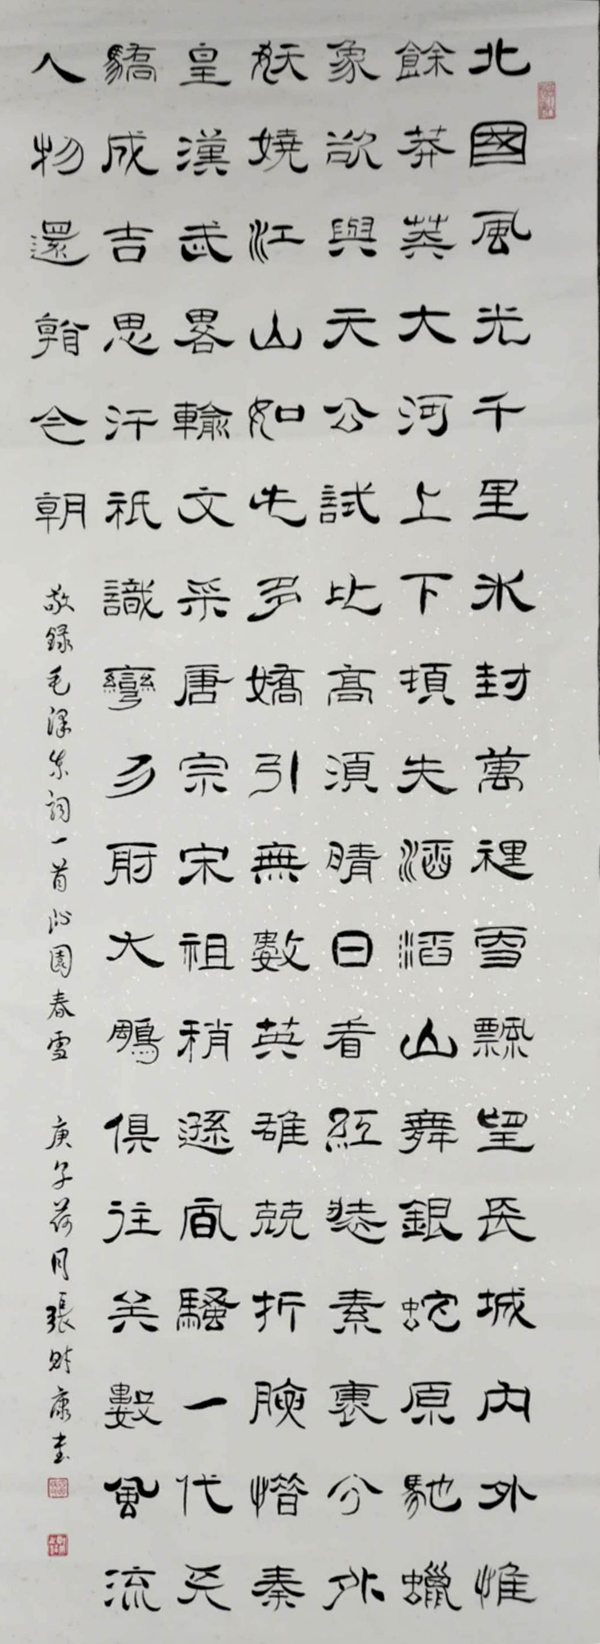 北國風光千里氷封萬裡雪飄望長城内外惟
餘莽莽大河上下頓失滔滔山舞銀蛇原馳蠟
象欲與天公試比高須晴日看紅裝素裹分外
妖嬈江山如此多嬌引無數英雄競折腰惜秦
皇漢武畧輸文采唐宗宋祖稍遜風騷一代天
驕成吉思汗祇識彎弓射大鵰俱往矣數風流
人物還看今朝
敬録毛澤東詞一首沁園春雪 庚子荷月張財康書